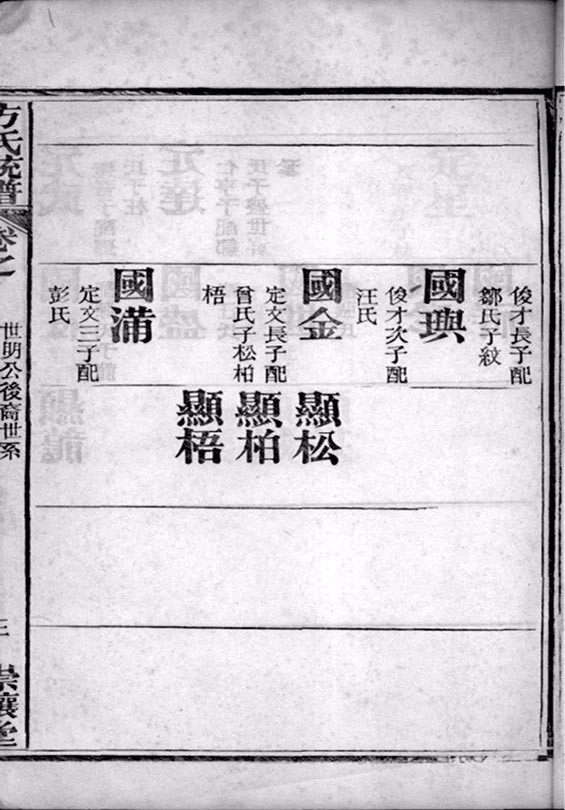 俊才長子配
鄒氏子紋
國璵
俊才次子配
汪氏
國金
定文長子配
曾氏子松柏
梧
國滿
定文三子配
彭氏
顯松
顯柏
顯梧
方氏統譜
卷之
世明公後裔世系